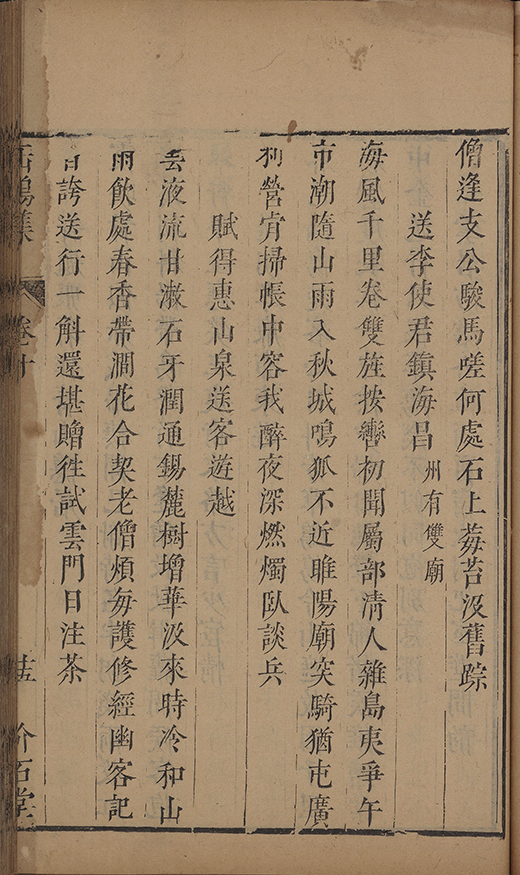 僧逢支公駿馬嗟何處石上莓苔沒舊踪
送李使君鎮海昌州有雙廟
海風千里卷雙旌按轡初聞屬部淸人雜島夷爭午
市潮隨山雨入秋城鳴狐不近睢陽廟突騎猶屯廣
利營肯掃帳中容我醉夜深燃燭臥談兵
賦得惠山泉送客遊越
雲液流甘漱石牙潤通錫麓樹增華汲來時冷和山
雨飲處春香帶澗花合契老僧煩每護修經幽客記
曾誇送行一斛還堪贈徃試雲門日注茶
缶鳴集 卷十 十五 介石堂